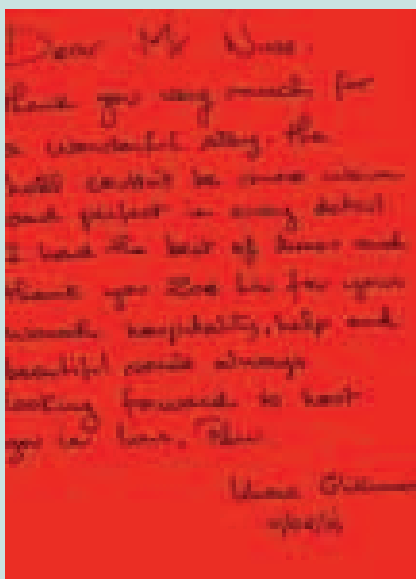 Dear Mr
thank you very much for
a wonderful stay. The
hotel couldn't be more warm
and perfect in every detail
I had the best of times and
thank you for your
warmth hospitality, help and
beautiful always
looking forward to host
you in